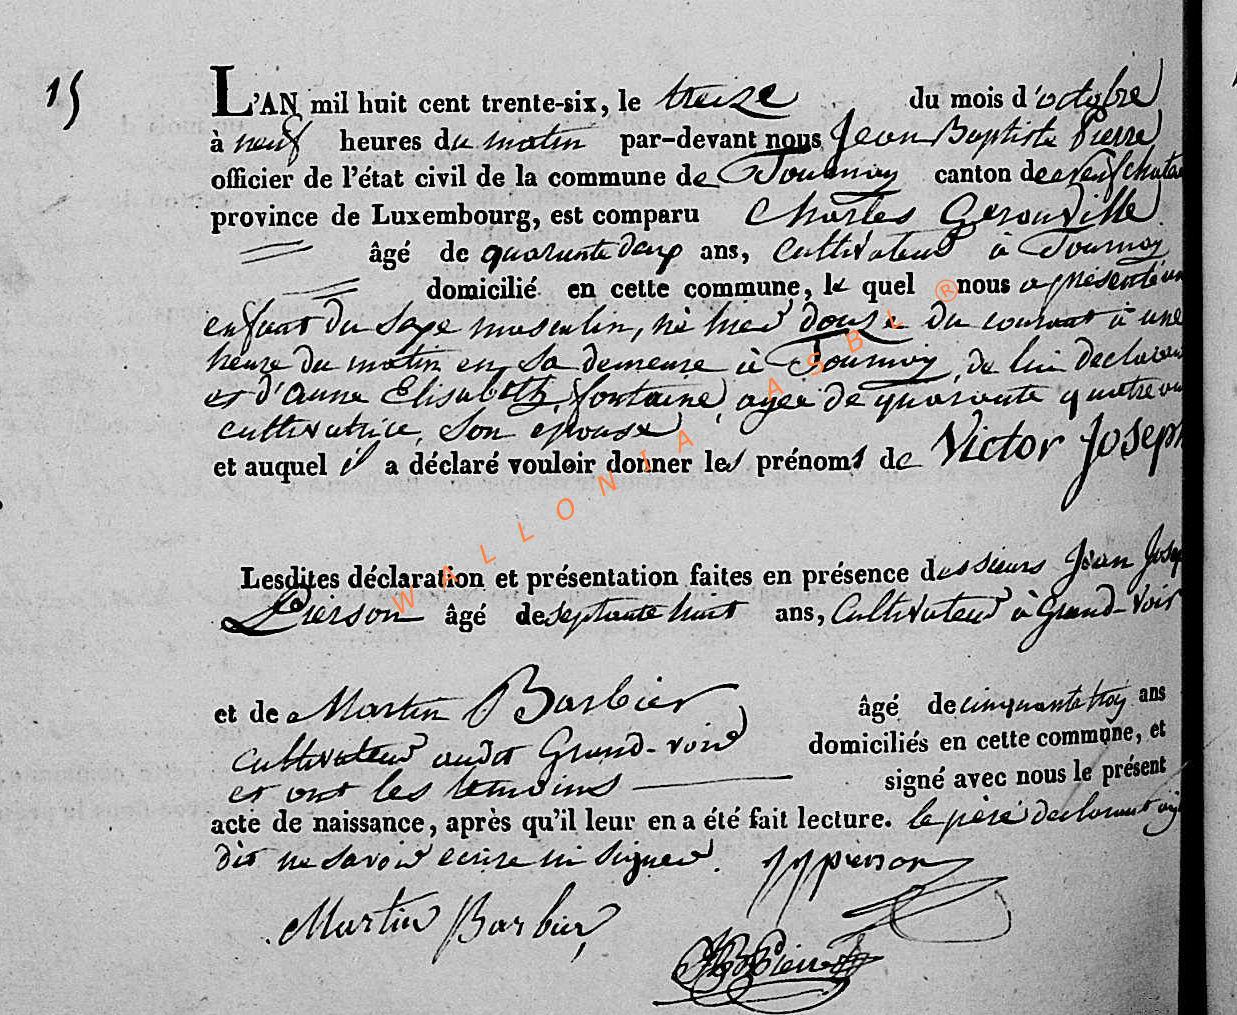 15
L'AN mil huit cent trente-six, le treize du mois d'octobre
à neuf heures du matin par-devant nous Jean Baptiste Pierre
officier de l'état civil de la commune de Tournay canton de neufchatea
province de Luxembourg, est comparu Charles Gerouville
âgé de quarante deux ans, cultivateur à Tournay
domicilié en cette commune, le quel nous a présenté un
enfant du sexe masculin, né hier douze du courant à une
heure du matin en sa demeure à Tournay, de lui declarant
et d'anne Elisabeth fontaine, agée de quarante quatre an
cultivatrice, son epouse
et auquel il a déclaré vouloir donner les prénoms de Victor Joseph
Lesdites déclaration et présentation faites en présence des sieurs Jean Josep
Pierson âgé de septante huit ans, Cultivateur à Grand-voir
et de Martin Barbier âgé de cinquante troi ans
cultivateur audit Grand-voir domiciliés en cette commune, et
et ont les temoins signé avec nous le présent
acte de naissance, après qu'il leur en a été fait lecture. le père declarant
dit ne savoir ecrire ni signer. JJPierson
Martin Barbier
JBPierre
WALLONIA ASBL ®